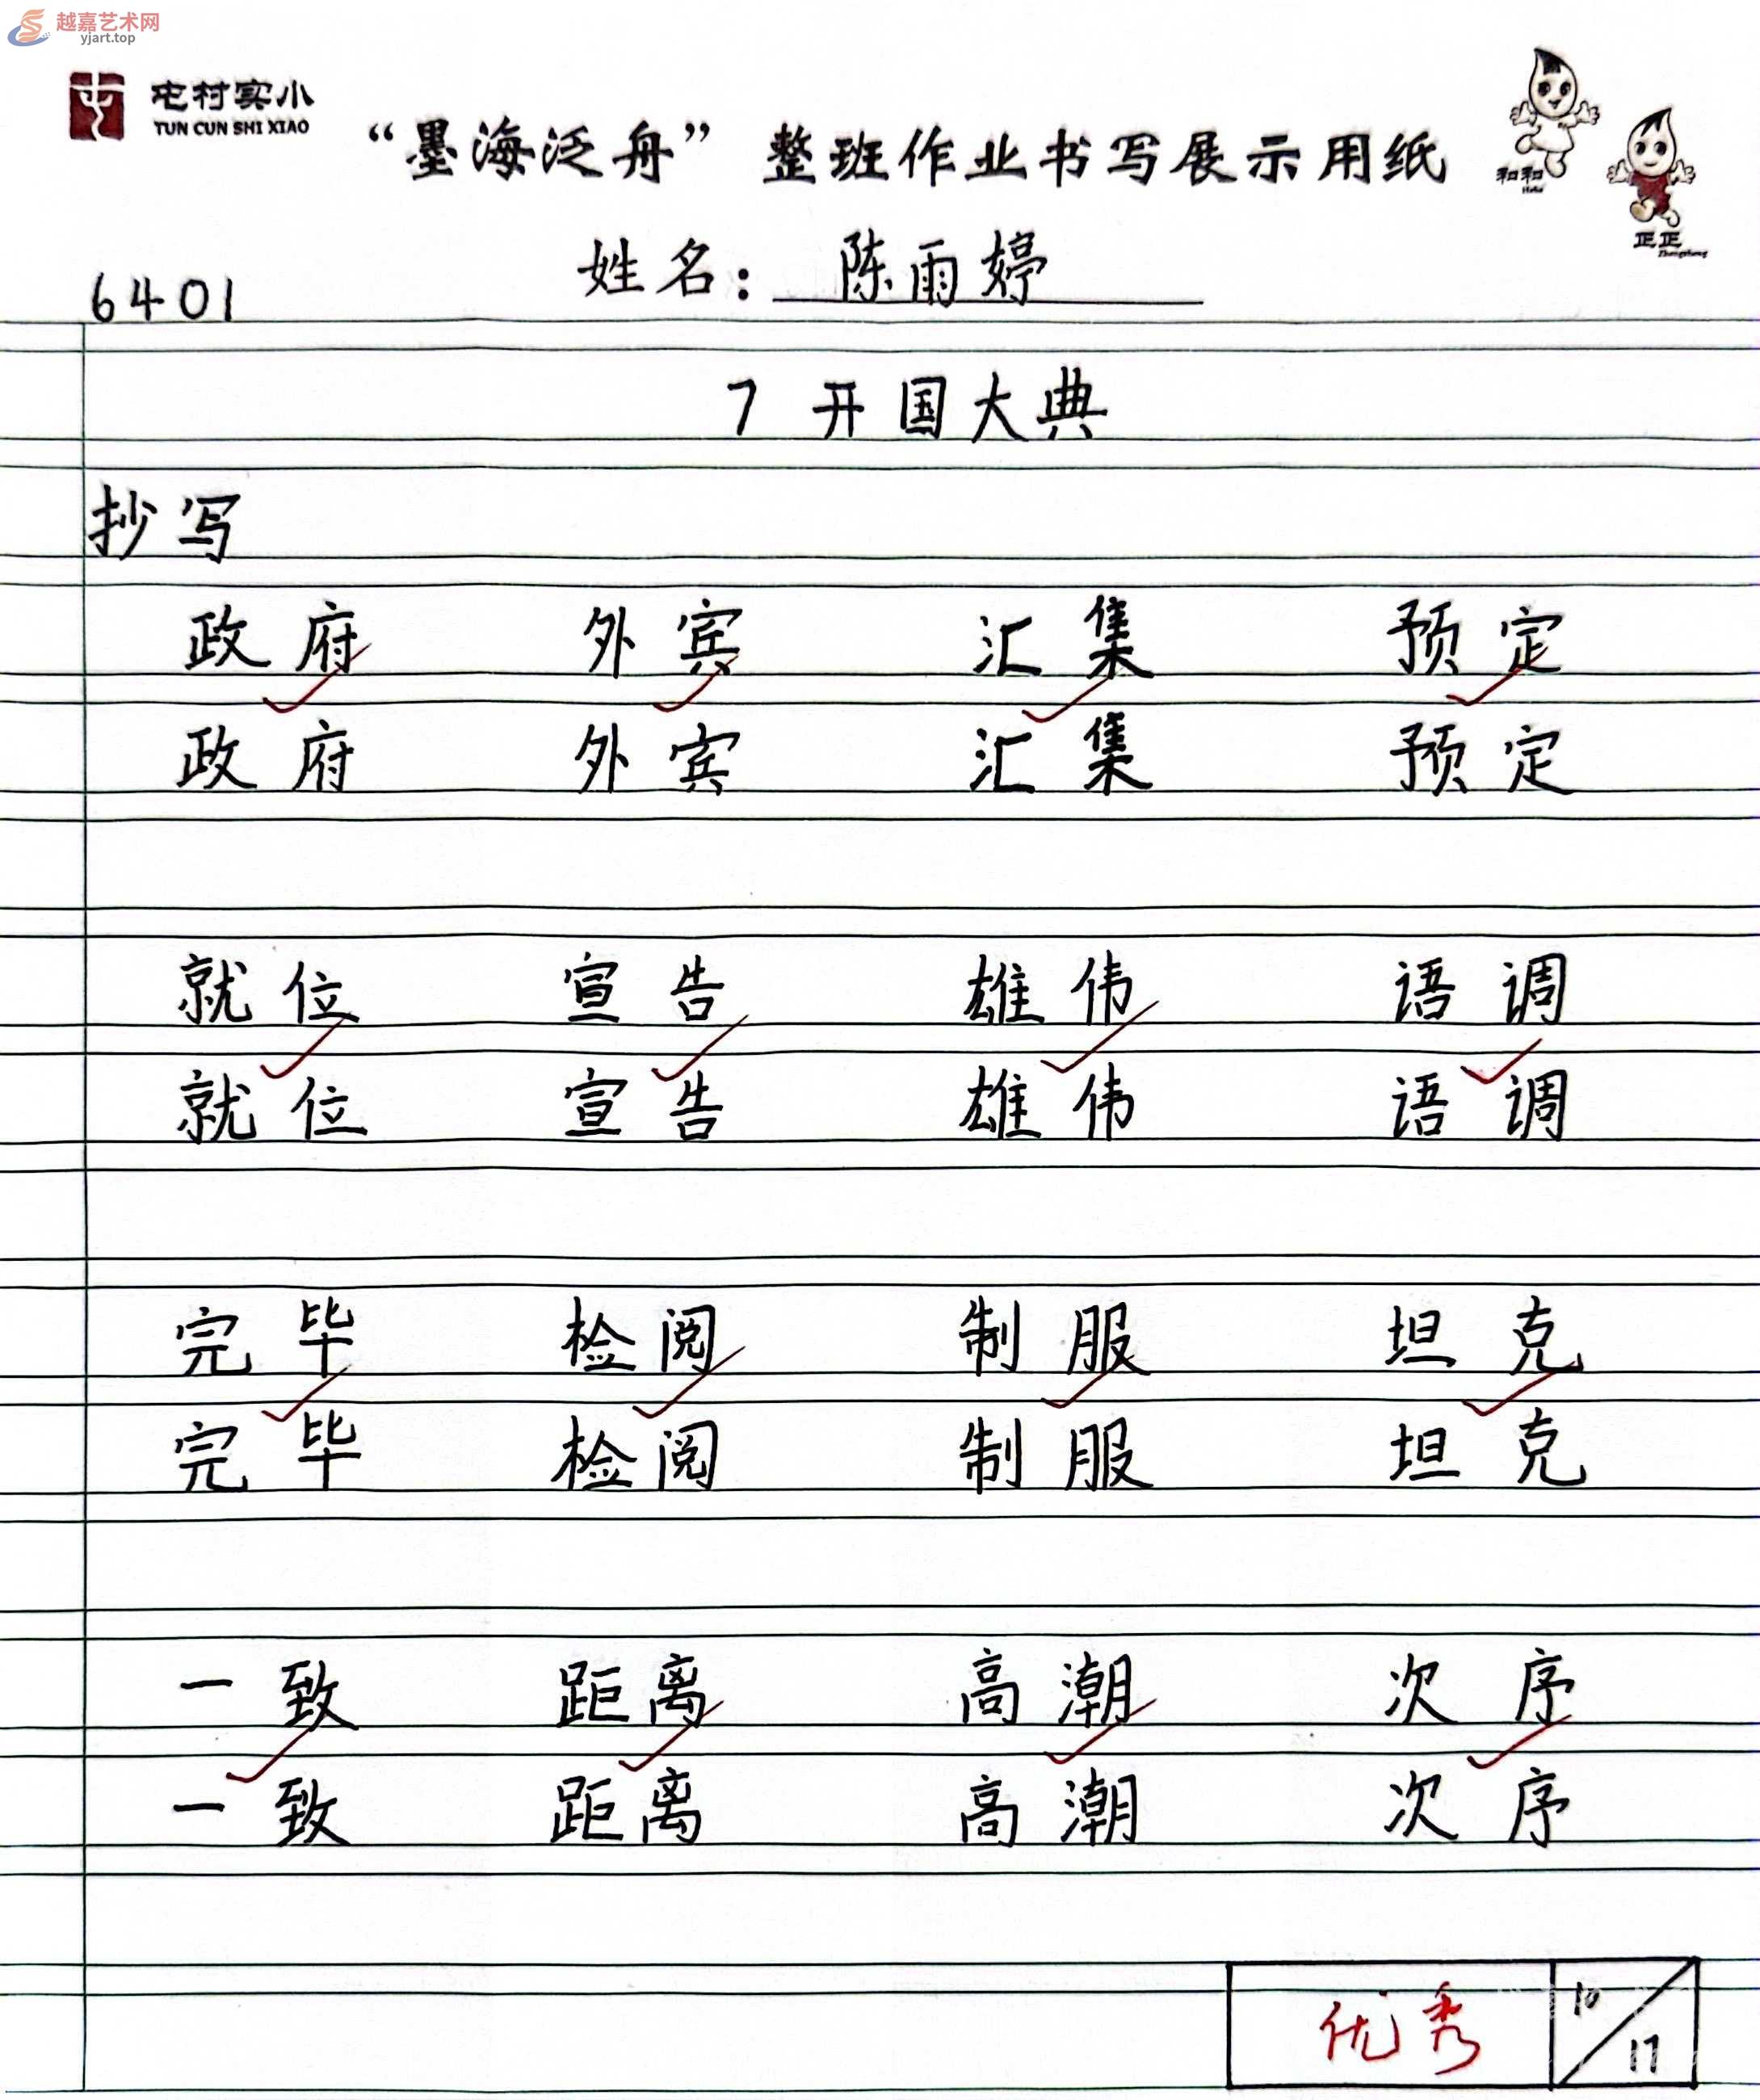 越嘉艺术网
yjart.top
屯村实小
TUN CUN SHI XIAO
“墨海泛舟” 整班作业书写展示用纸
和和
Hehe
正正
Zhengzheng
6401 姓名：陈雨婷
7 开国大典
抄写
政府 外宾 汇集 预定
政府 外宾 汇集 预定
就位 宣告 雄伟 语调
就位 宣告 雄伟 语调
完毕 检阅 制服 坦克
完毕 检阅 制服 坦克
一致 距离 高潮 次序
一致 距离 高潮 次序
优秀 10/17